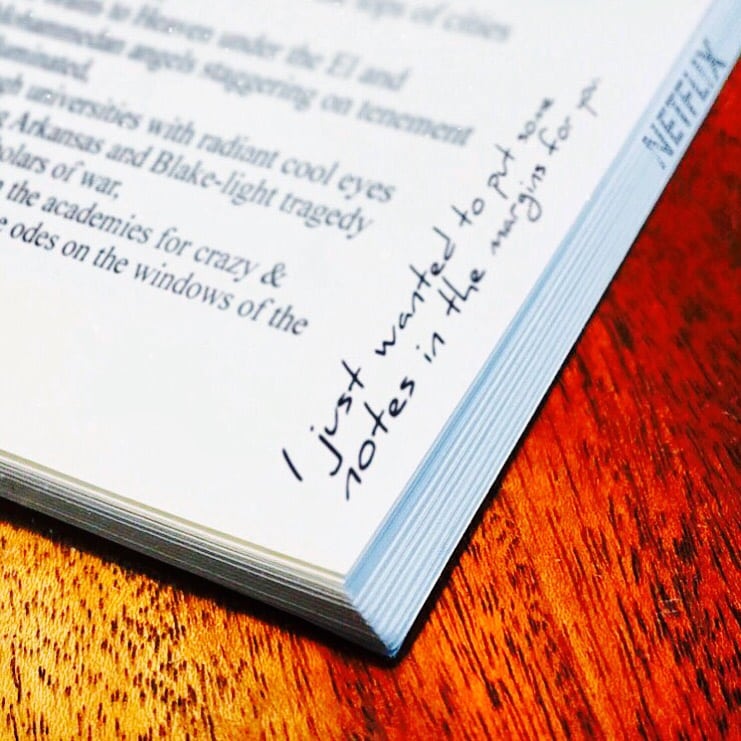 tops of cities
to Heaven under the El and
Mohammedan angels staggering on tenement
illuminated.
universities with radiant cool eyes
Arkansas and Blake-light tragedy
of war,
the academies for crazy &
odes on the windows of the
I just wanted to put some
notes in the margins for you
NETFLIX